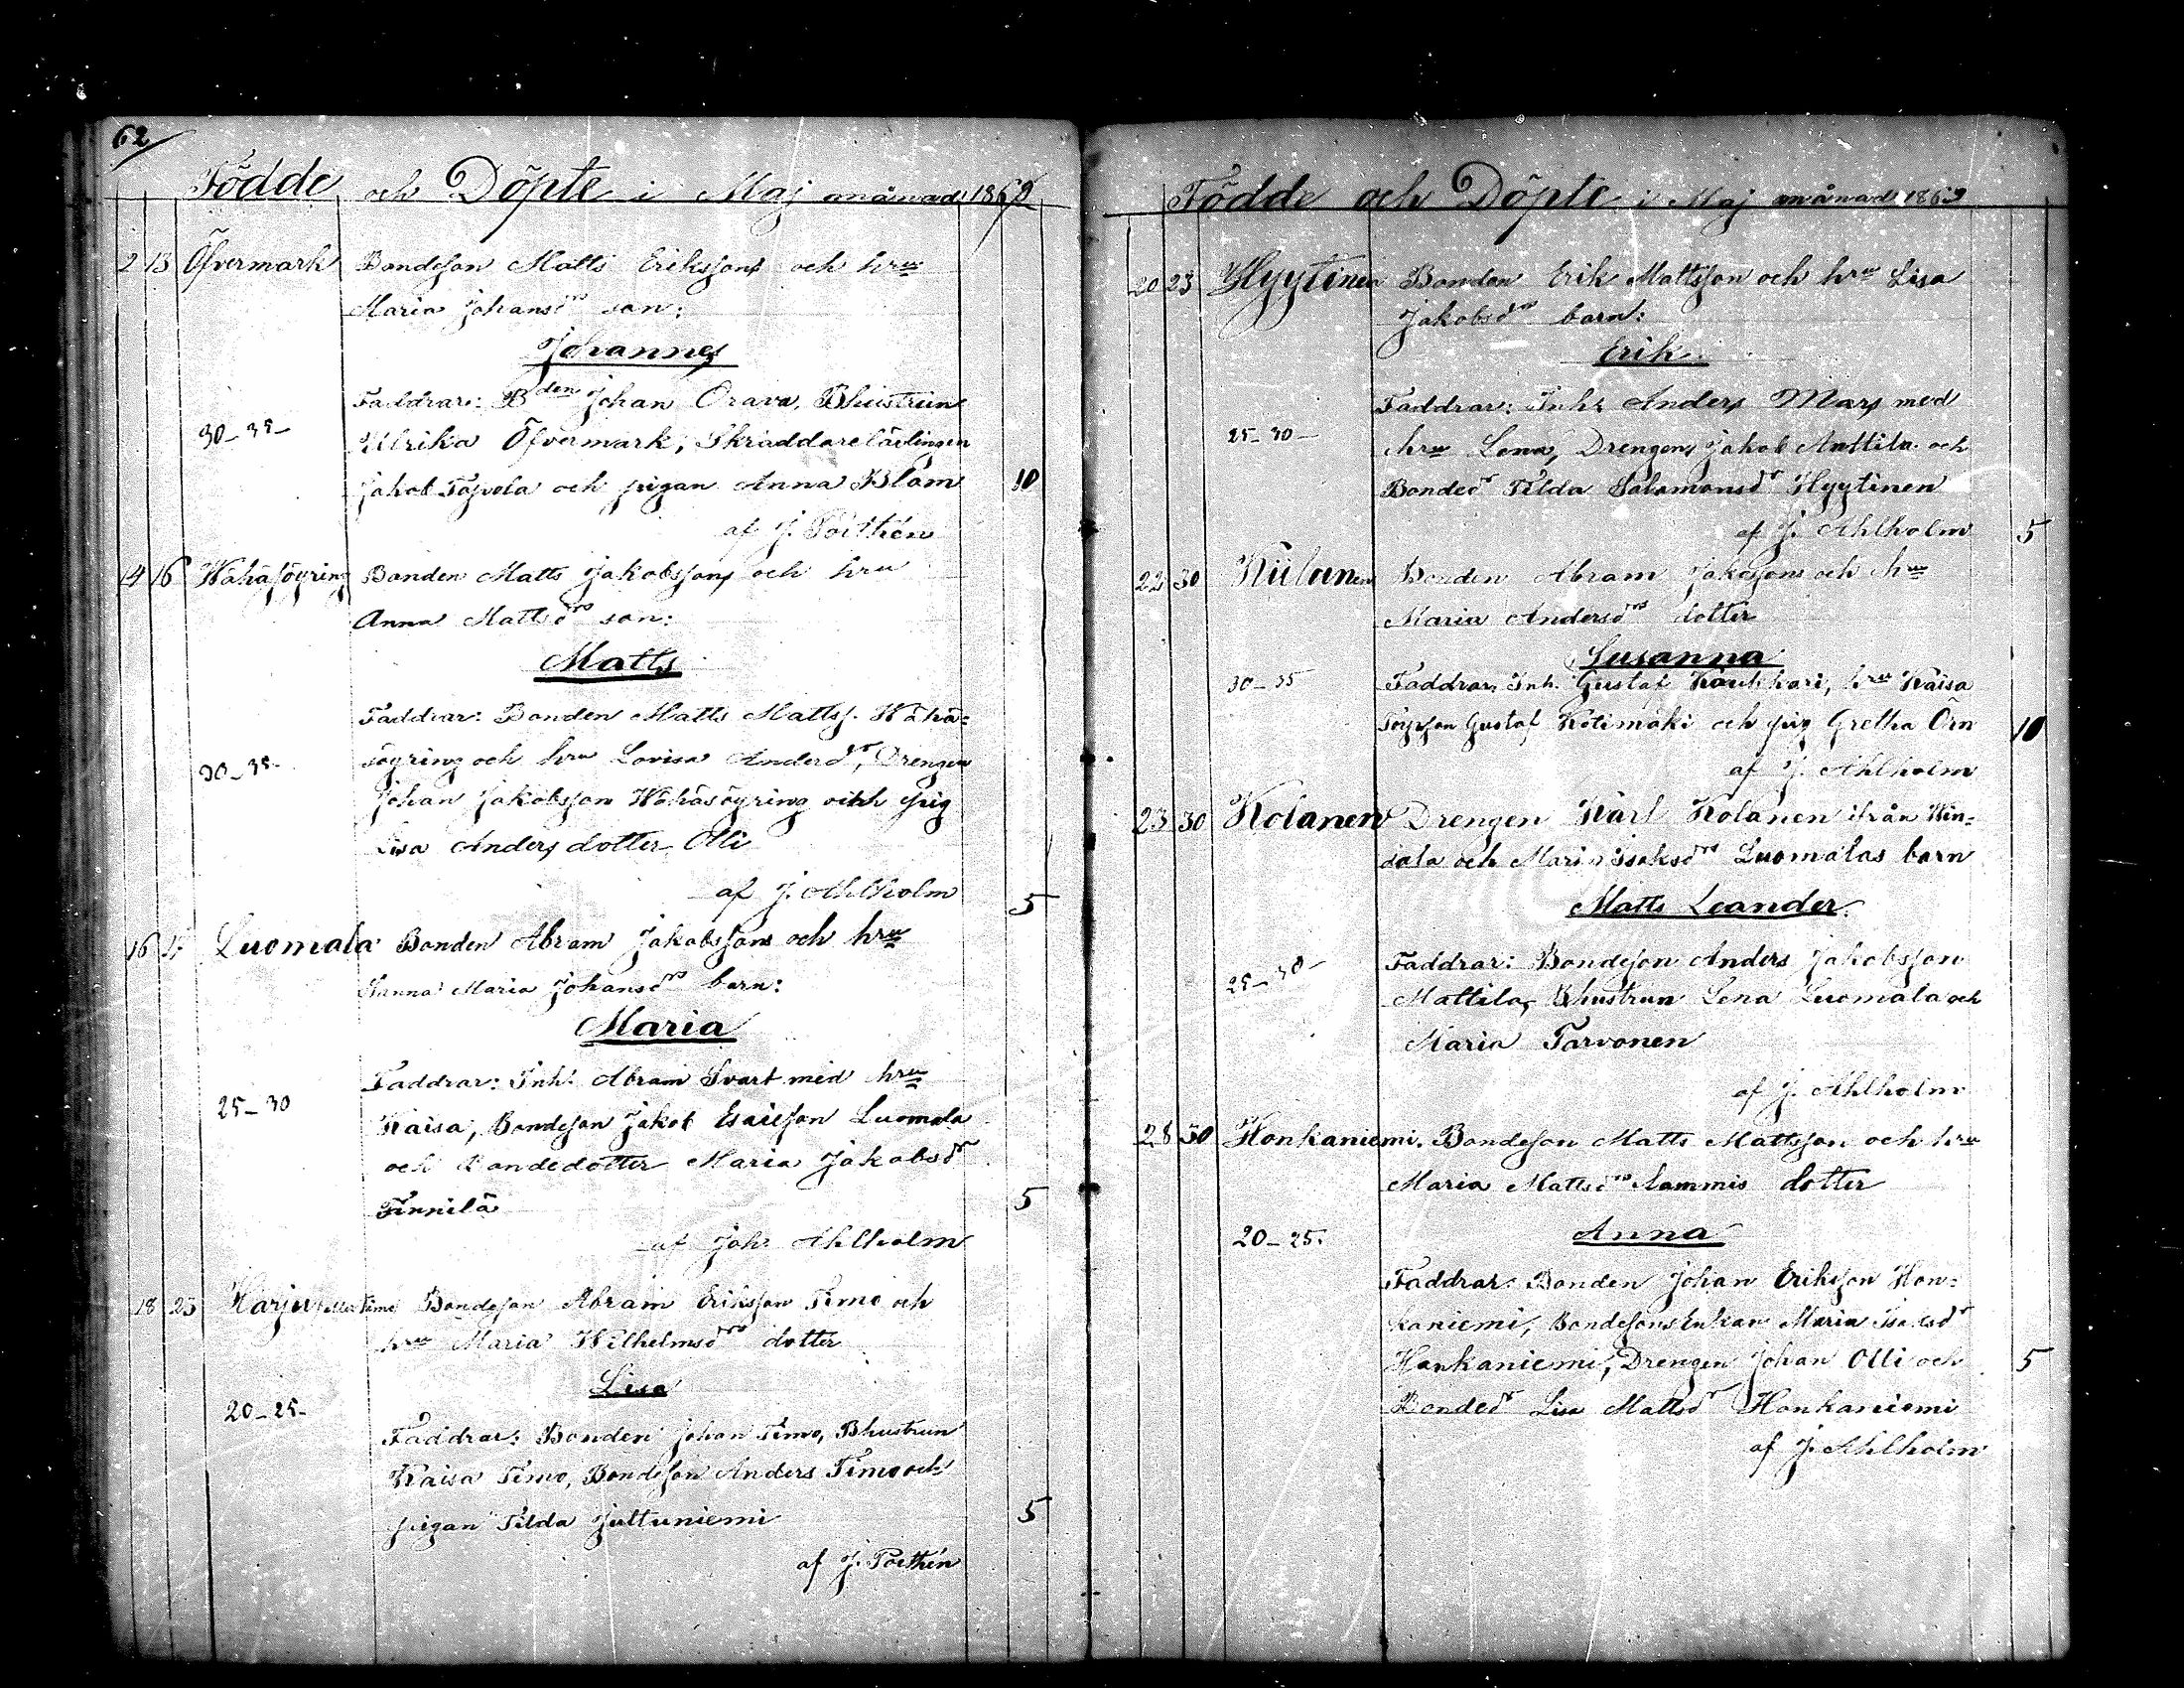 62
Födde och Döpte i Maj månad 1862
2 13 Öfvermark Bondeson Matts Erikssons och hru
Maria Johansdrs son:
Johannes
Faddrar: Bden Johan Orava, Bhustrun
30-35- Ulrika Öfvermark, Skräddarelärlingen
Jakob och pigan Anna Blom 10
af J. Poithén
14 16 Wähäsöyring Bonden Matts Jakobssons och hru
Anna Mattsdrs son:
Matts
Faddrar: Bonden Matts Mattss. Wähä=
söyring och hru Lovisa Andersdr, Drengen
30-35- Johan Jakobsson Wähäsöyring och pig
Lisa Anders dotter Olli
af J. Ahlholm 5
16 17 Luomala Bonden Abram Jakobssons och hru
Sanna Maria Johansdrs barn:
Maria
Faddrar: Inh. Abram Svart med hru
25-30 Kaisa, Bondeson Jakob Esaiesson Luomala
och Bondedotter Maria Jakobsdr
Finnilä 5
af Joh. Ahlholm
18 25 Harju eller Timo Bondeson Abram Eriksson Timo och
hru Maria Wilhelmsdrs dotter
Lisa
20-25- Faddrar: Bonden Johan Timo, Bhustrun
Kaisa Timo, Bondeson Anders Timo och
pigan Tilda Juttuniemi 5
af J. Poithén
Födde och Döpte i Maj månad 1862
20 23 Hyytinen Bonden Erik Mattsson och hru Lisa
Jakobsdrs barn:
Erik
Faddrar: Inh. Anders Mars med
25-30- hru Lena, Drengen Jakob Anttila och
Bondedr Tilda Salomonsdr Hyytinen
af J. Ahlholm 5
22 30 Bonden Abram och hru
Maria Andersdrs dotter
Susanna
30-35 Faddrar: Inh. Gustaf hru Kaisa
Gustaf Kotimäki och pig Gretha Örn 10
af J. Ahlholm
23 30 Kolanen Drengen Karl Kolanen ifrån Win=
dala och Maria Isaksdrs Luomalas barn
Matts Leander
Faddrar: Bondeson Anders Jakobsson
25-30- Mattila, Bhustrun Lena Luomala och
Maria Tarvonen
af J. Ahlholm
28 30 Honkaniemi. Bondeson Matts Mattsson och hru
Maria Mattsdrs Sammis dotter
20-25. Anna
Faddrar: Bonden Johan Eriksson Hon=
kaniemi, Bondesons Enkan Maria Isaksdr
Honkaniemi, Drengen Johan Olli och 5
Bondedr Lisa Mattsdr Honkaniemi
af J. Ahlholm